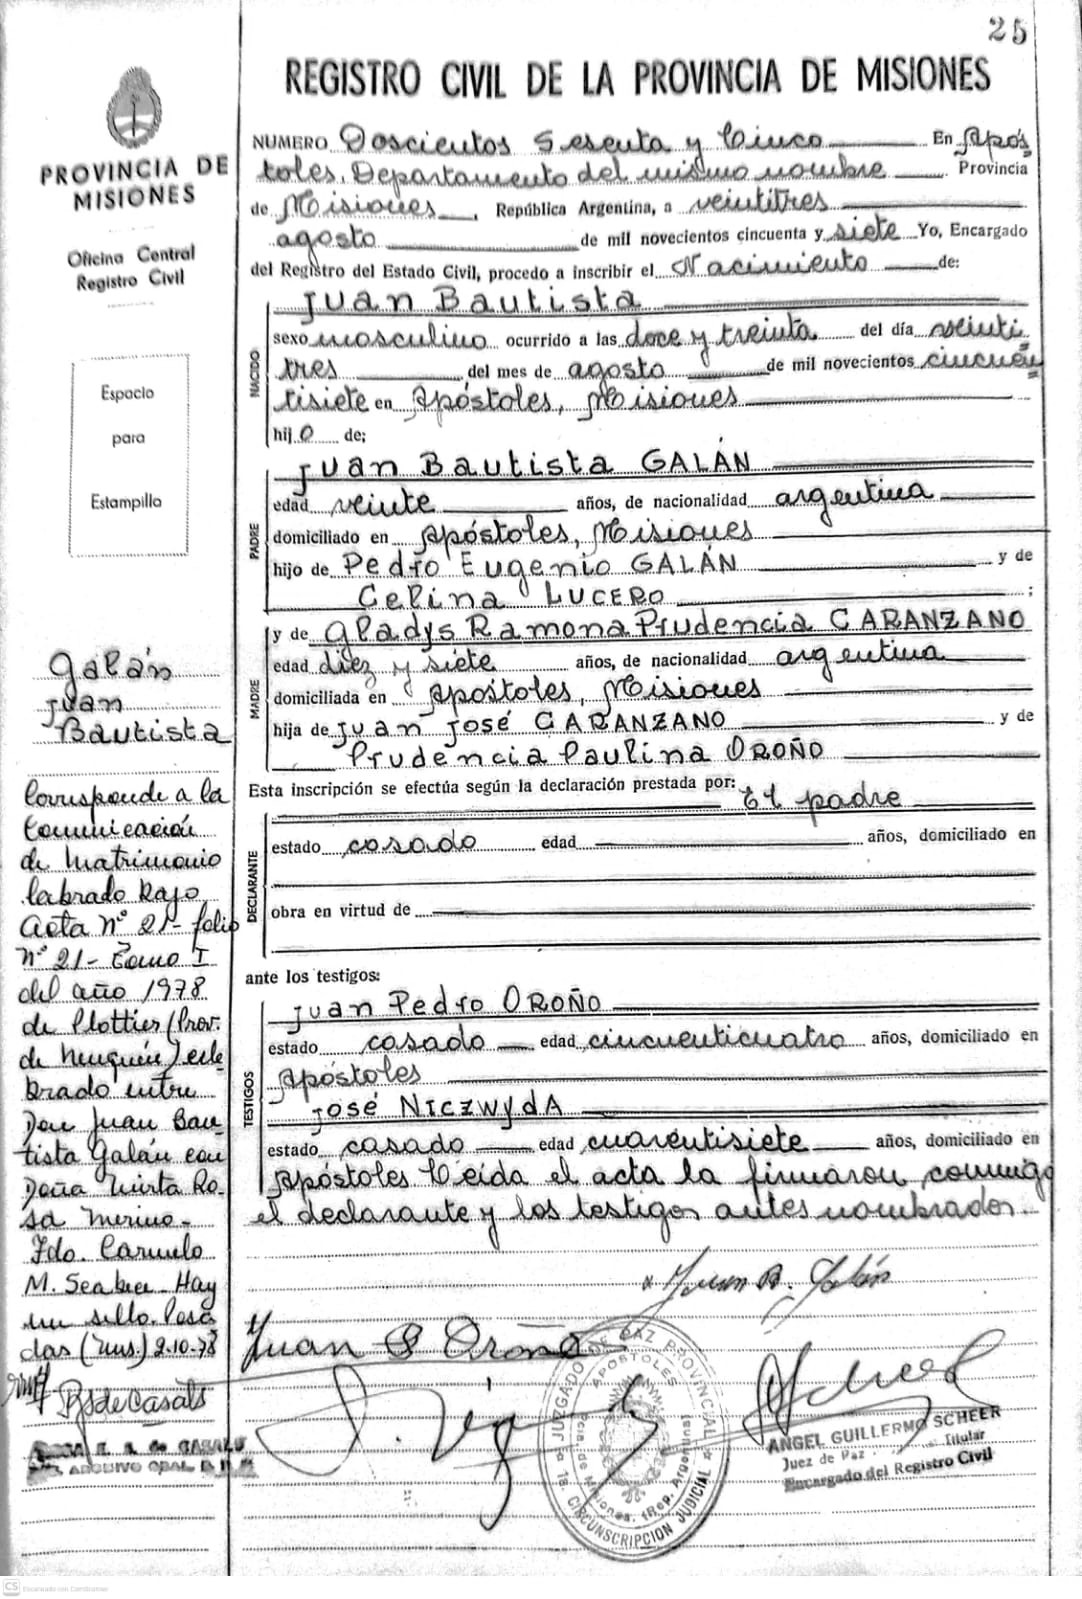 25
REGISTRO CIVIL DE LA PROVINCIA DE MISIONES
NUMERO Doscientos Sesenta y Cinco En Após
toles, Departamento del mismo nombre . Provincia
de Misiones , República Argentina, a veintitres
agosto de mil novecientos cincuenta y siete Yo, Encargado
del Registro del Estado Civil, procedo a inscribir el Nacimiento de:
NACIDO
Juan Bautista
sexo masculino ocurrido a las doce y treinta del día veinti
tres del mes de agosto de mil novecientos cincuen
tisiete en Apóstoles, Misiones
hijo de;
PADRE
Juan Bautista GALÁN
edad veinte años, de nacionalidad argentina
domiciliado en Apóstoles, Misiones
hijo de Pedro Eugenio GALÁN y de
Celina LUCERO ;
MADRE
y de Gladys Ramona Prudencia CARANZANO
edad diez y siete años, de nacionalidad argentina
domiciliada en Apóstoles, Misiones
hija de Juan José CARANZANO y de
Prudencia Paulina OROÑO
Esta inscripción se efectúa según la declaración prestada por: El padre
DECLARANTE
estado casado edad años, domiciliado en
obra en virtud de
ante los testigos:
TESTIGOS
Juan Pedro OROÑO
estado casado edad cincuenticuatro años, domiciliado en
Apóstoles
José NICZWYDA
estado casado edad cuarentisiete años, domiciliado en
Apóstoles Leída el acta la firmaron conmigo
el declarante y los testigos antes nombrados.
Juan B. Galán
Juan P Oroño
JUZGADO DE PAZ PROVINCIAL
APOSTOLES
Pcia. de Misiones. (Rep. Argentina)
1a. CIRCUNSCRIPCION JUDICIAL
ANGEL GUILLERMO SCHEER
Juez de Paz Titular
Encargado del Registro Civil
PROVINCIA DE
MISIONES
Oficina Central
Registro Civil
Espacio
para
Estampilla
Galán
Juan
Bautista
Corresponde a la
Comunicación
de Matrimonio
labrado bajo
acta Nº 21- folio
Nº 21- Tomo I
del año 1978
de Plottier (Prov.
de Neuquén) cele
brado entre
Don Juan Bau-
tista Galán con
Doña Mirta Ro-
sa Merino-
Fdo. Carmelo
M. Hay
un sello. Posa
das (Mns.) 2-10-78
de Casals
CS Escaneado con CamScanner